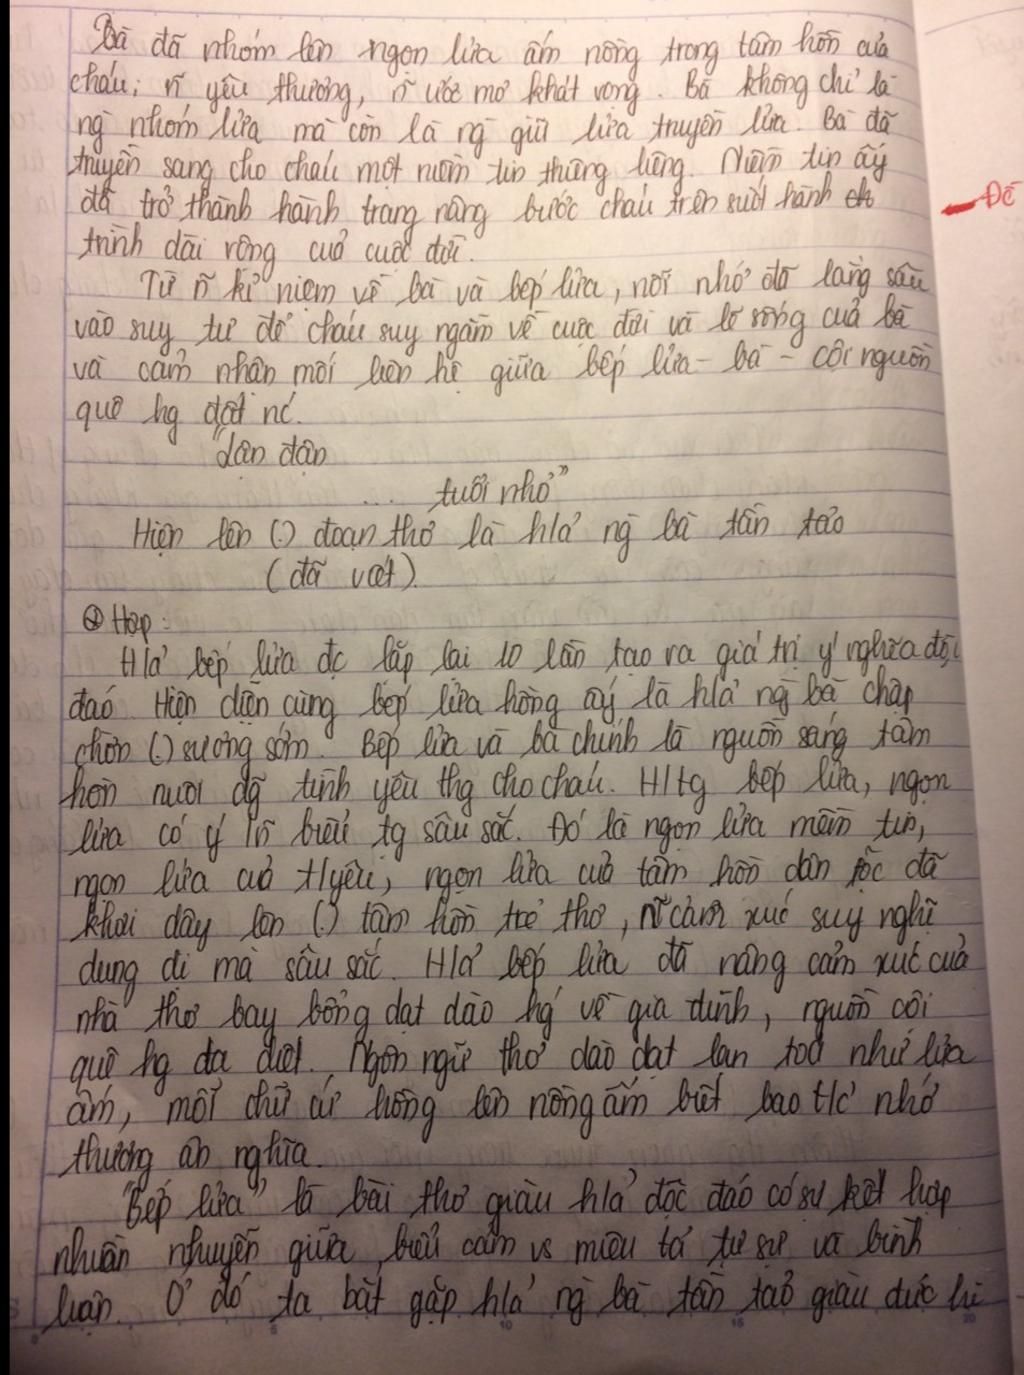 Bà đã nhóm lên ngọn lửa ấm nồng trong tâm hồn của
cháu; ~n yêu thương, ~n ước mơ khát vọng. Bà không chỉ là
ng nhóm lửa mà còn là ng giữ lửa truyền lửa. Bà đã
truyền sang cho cháu một niềm tin thiêng liêng. Niềm tin ấy
đã trở thành hành trang nâng bước cháu trên suốt hành ch
trình dài rộng của cuộc đời.
Đề
Từ ~n kỉ niệm về bà và bếp lửa, nỗi nhớ đã lắng sâu
vào suy tư để cháu suy ngẫm về cuộc đời và lẽ sống của bà
và cảm nhận mối liên hệ giữa bếp lửa - bà - cội nguồn
quê hg đất nc.
"Lận đận
... tuổi nhỏ"
Hiện lên (.) đoạn thơ là h/ả ng bà tần tảo
(đã viết).
⊕ Hợp:
H/ả bếp lửa đc lặp lại 10 lần tạo ra giá trị ý nghĩa độc
đáo. Hiện diện cùng bếp lửa hồng ấy là h/ả ng bà chập
chờn (.) sương sớm. Bếp lửa và bà chính là nguồn sáng tâm
hồn nuôi dg tình yêu thg cho cháu. H/tg bếp lửa, ngọn
lửa có ý biểu tg sâu sắc. Đó là ngọn lửa niềm tin,
ngọn lửa của t/yêu, ngọn lửa của tâm hồn dân tộc đã
khơi dậy lên (.) tâm hồn trẻ thơ, ~n cảm xúc suy nghĩ
dung dị mà sâu sắc. H/ả bếp lửa đã nâng cảm xúc của
nhà thơ bay bổng dạt dào hg về gia đình, nguồn cội
quê hg da diết. Ngôn ngữ thơ dào dạt lan toả như lửa
ấm, mỗi chữ cứ hồng lên nồng ấm biết bao t/c nhớ
thương ân nghĩa.
"Bếp lửa" là bài thơ giàu h/ả độc đáo có sự kết hợp
nhuần nhuyễn giữa biểu cảm vs miêu tả tự sự và bình
luận. Ở đó ta bắt gặp h/ả ng bà tần tảo giàu đức hi